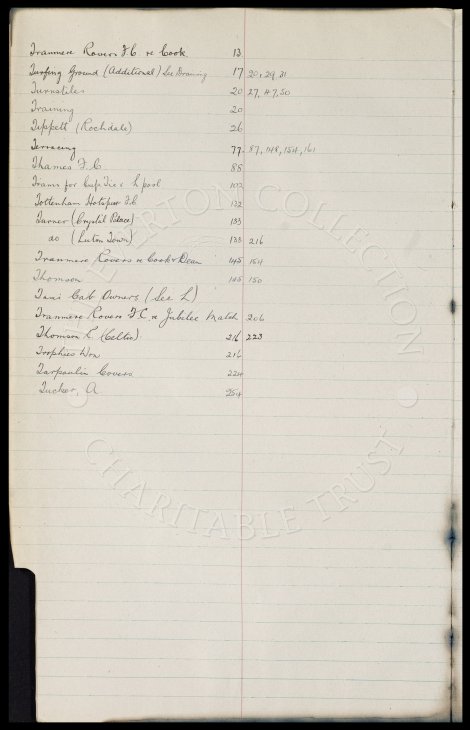 Tranmere Rovers F.C. re Cook. 13
Turfing Ground (Additional) See Drawing 17 20, 29, 31
Turnstiles 20 27, 47, 50
Training 20
Tippett (Rochdale) 26
Terracing 77 87, 148, 154, 161
Thames F.C. 88
Trams for Cup Tie L'pool 102
Tottenham Hotspur F.C. 132
Turner (Crystal Palace) 133
do (Luton Town) 133 216
Tranmere Rovers re Cook & Dean 145 154
Thomson 145 150
Taxi Cab Owners (See L)
Tranmere Rovers F.C. re Jubilee Match 206
Thomson R. (Celtic) 216 223
Trophies Won 216
Tarpaulin Covers 224
Tucker, A 254
EVERTON COLLECTION
CHARITABLE TRUST